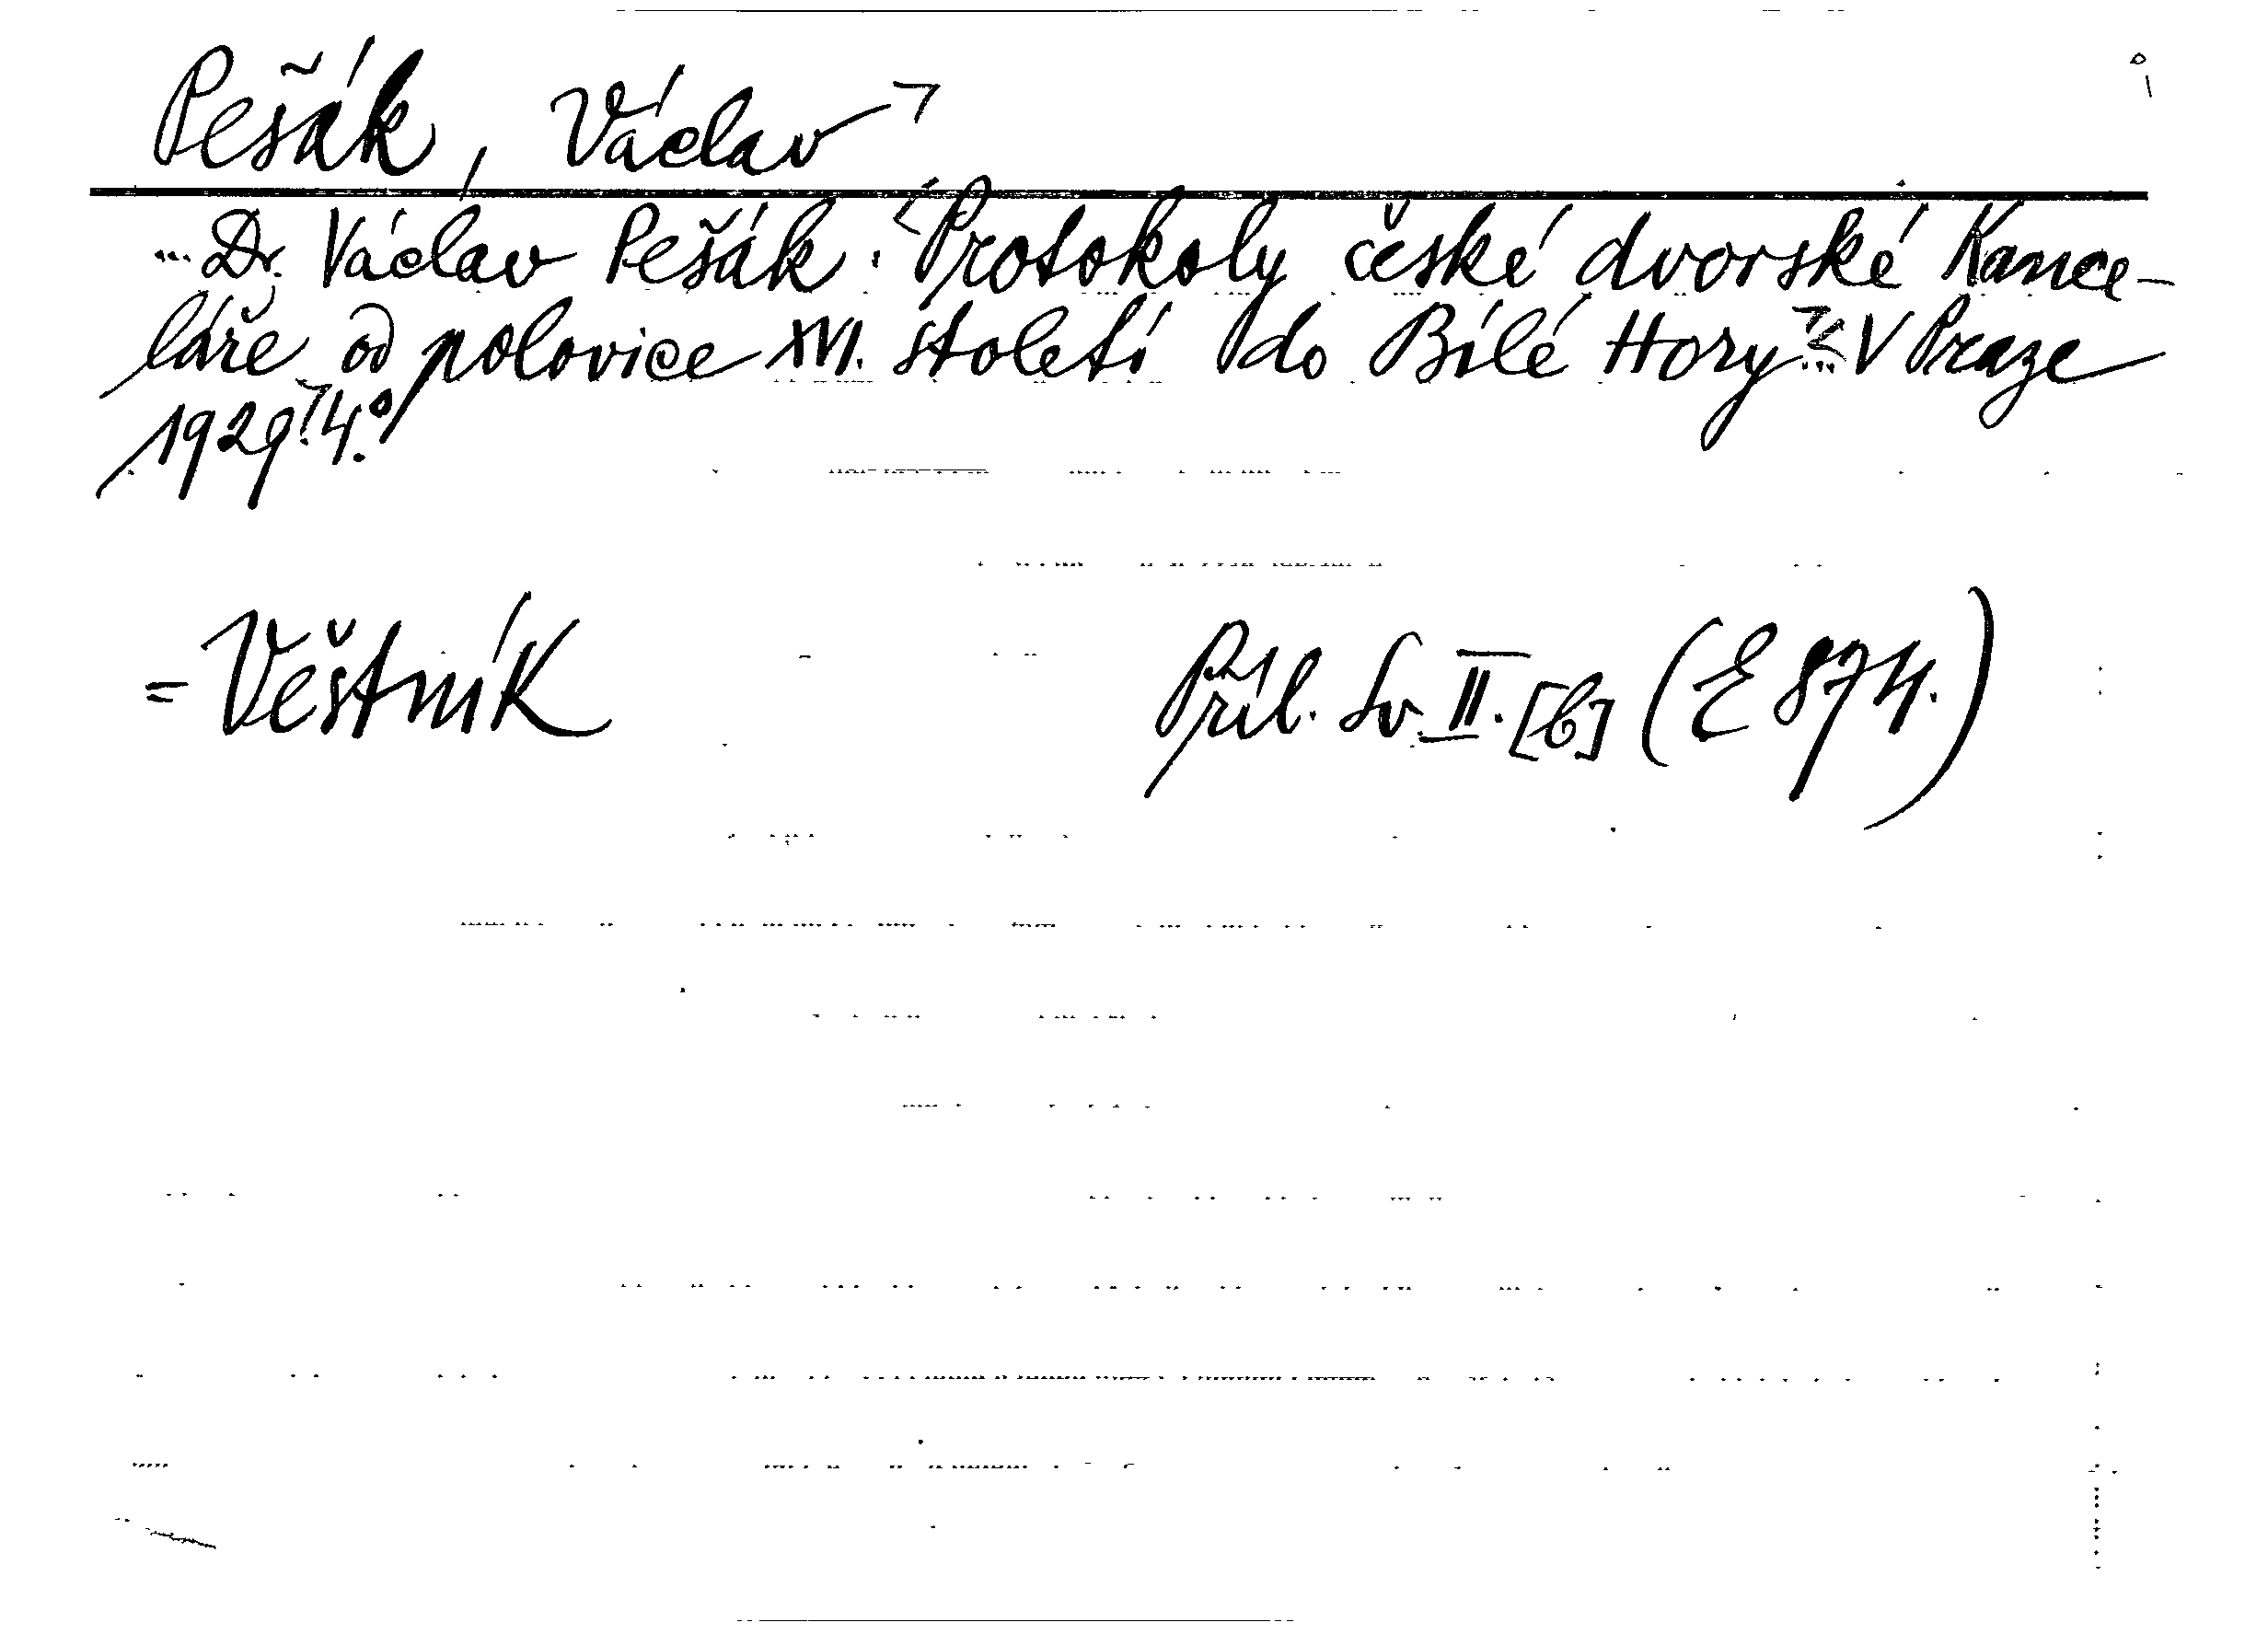 Pešák, Václav
... Dr. Václav Pešák: Protokoly české dvorské Kance-
láře od polovice XVI. století do Bílé Hory ... V Praze
1929. 4.°
= Věštník Příl. Sv. II. [b] (E 874.)